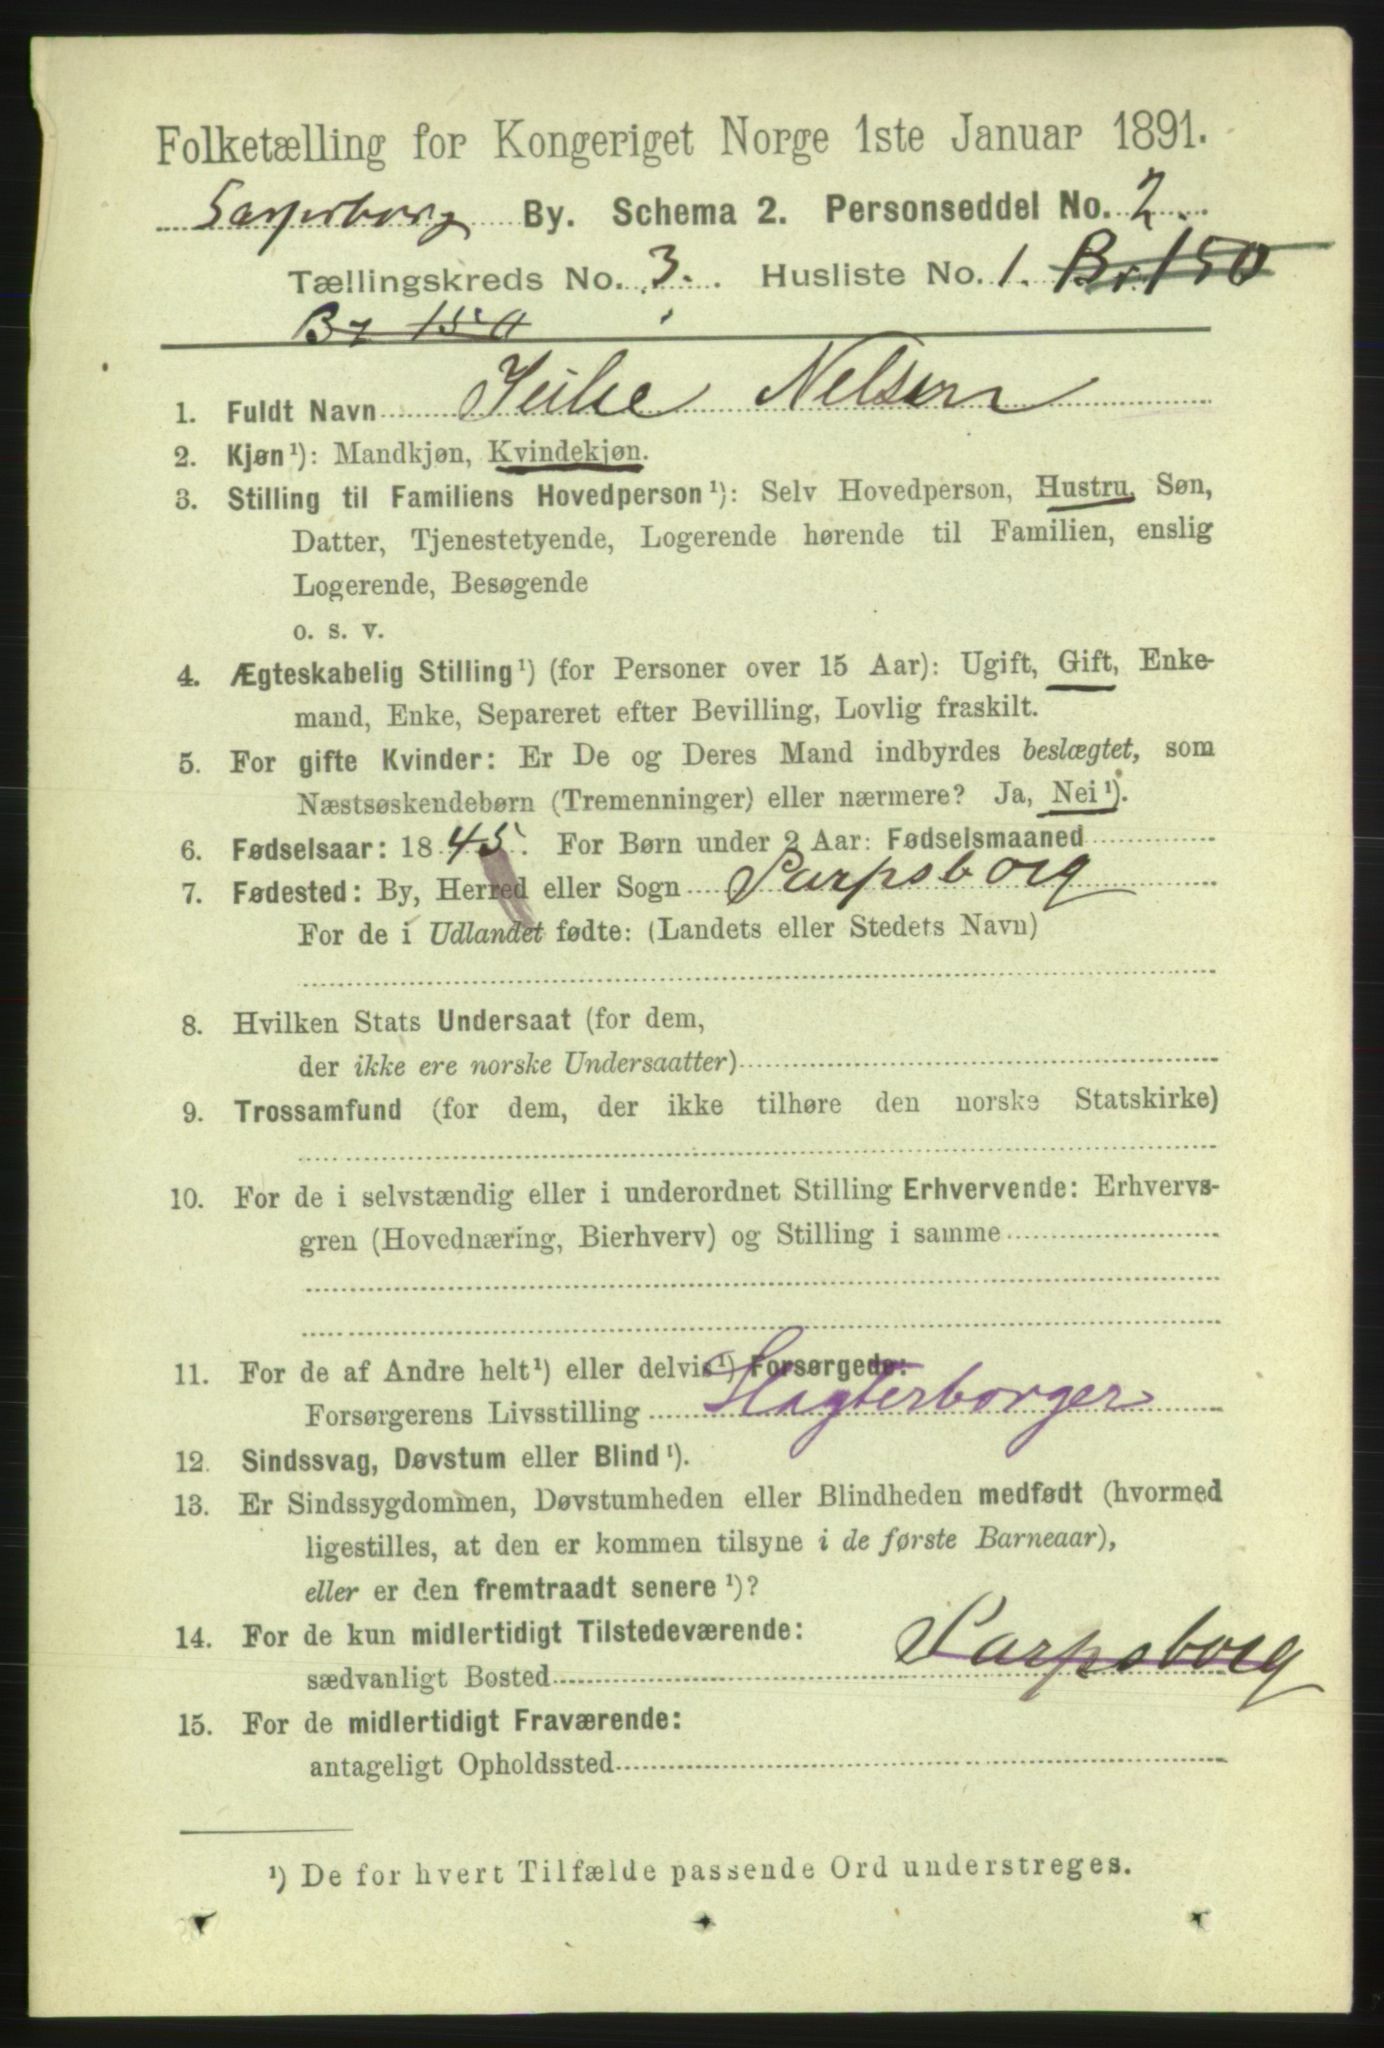 Folketælling for Kongeriget Norge 1ste Januar 1891.
Sarpsborg By. Schema 2. Personseddel No. 2.
Tællingskreds No. 3. Husliste No. 1. Br 150
Br 150
1. Fuldt Navn Nelsen
2. Kjøn¹): Mandkjøn, Kvindekjøn.
3. Stilling til Familiens Hovedperson¹): Selv Hovedperson, Hustru, Søn,
Datter, Tjenestetyende, Logerende hørende til Familien, enslig
Logerende, Besøgende
o. s. v.
4. Ægteskabelig Stilling¹) (for Personer over 15 Aar): Ugift, Gift, Enke-
mand, Enke, Separeret efter Bevilling, Lovlig fraskilt.
5. For gifte Kvinder: Er De og Deres Mand indbyrdes beslægtet, som
Næstsøskendebørn (Tremenninger) eller nærmere? Ja, Nei¹).
6. Fødselsaar: 1845. For Børn under 2 Aar: Fødselsmaaned
7. Fødested: By, Herred eller Sogn Sarpsborg
For de i Udlandet fødte: (Landets eller Stedets Navn)
8. Hvilken Stats Undersaat (for dem,
der ikke ere norske Undersaatter)
9. Trossamfund (for dem, der ikke tilhøre den norske Statskirke)
10. For de i selvstændig eller i underordnet Stilling Erhvervende: Erhvervs-
gren (Hovednæring, Bierhverv) og Stilling i samme
11. For de af Andre helt¹) eller delvis¹) Forsørgede:
Forsørgerens Livsstilling Slagterborger
12. Sindssvag, Døvstum eller Blind¹).
13. Er Sindssygdommen, Døvstumheden eller Blindheden medfødt (hvormed
ligestilles, at den er kommen tilsyne i de første Barneaar),
eller er den fremtraadt senere¹)?
14. For de kun midlertidigt Tilstedeværende:
sædvanligt Bosted Sarpsborg
15. For de midlertidigt Fraværende:
antageligt Opholdssted
¹) De for hvert Tilfælde passende Ord understreges.